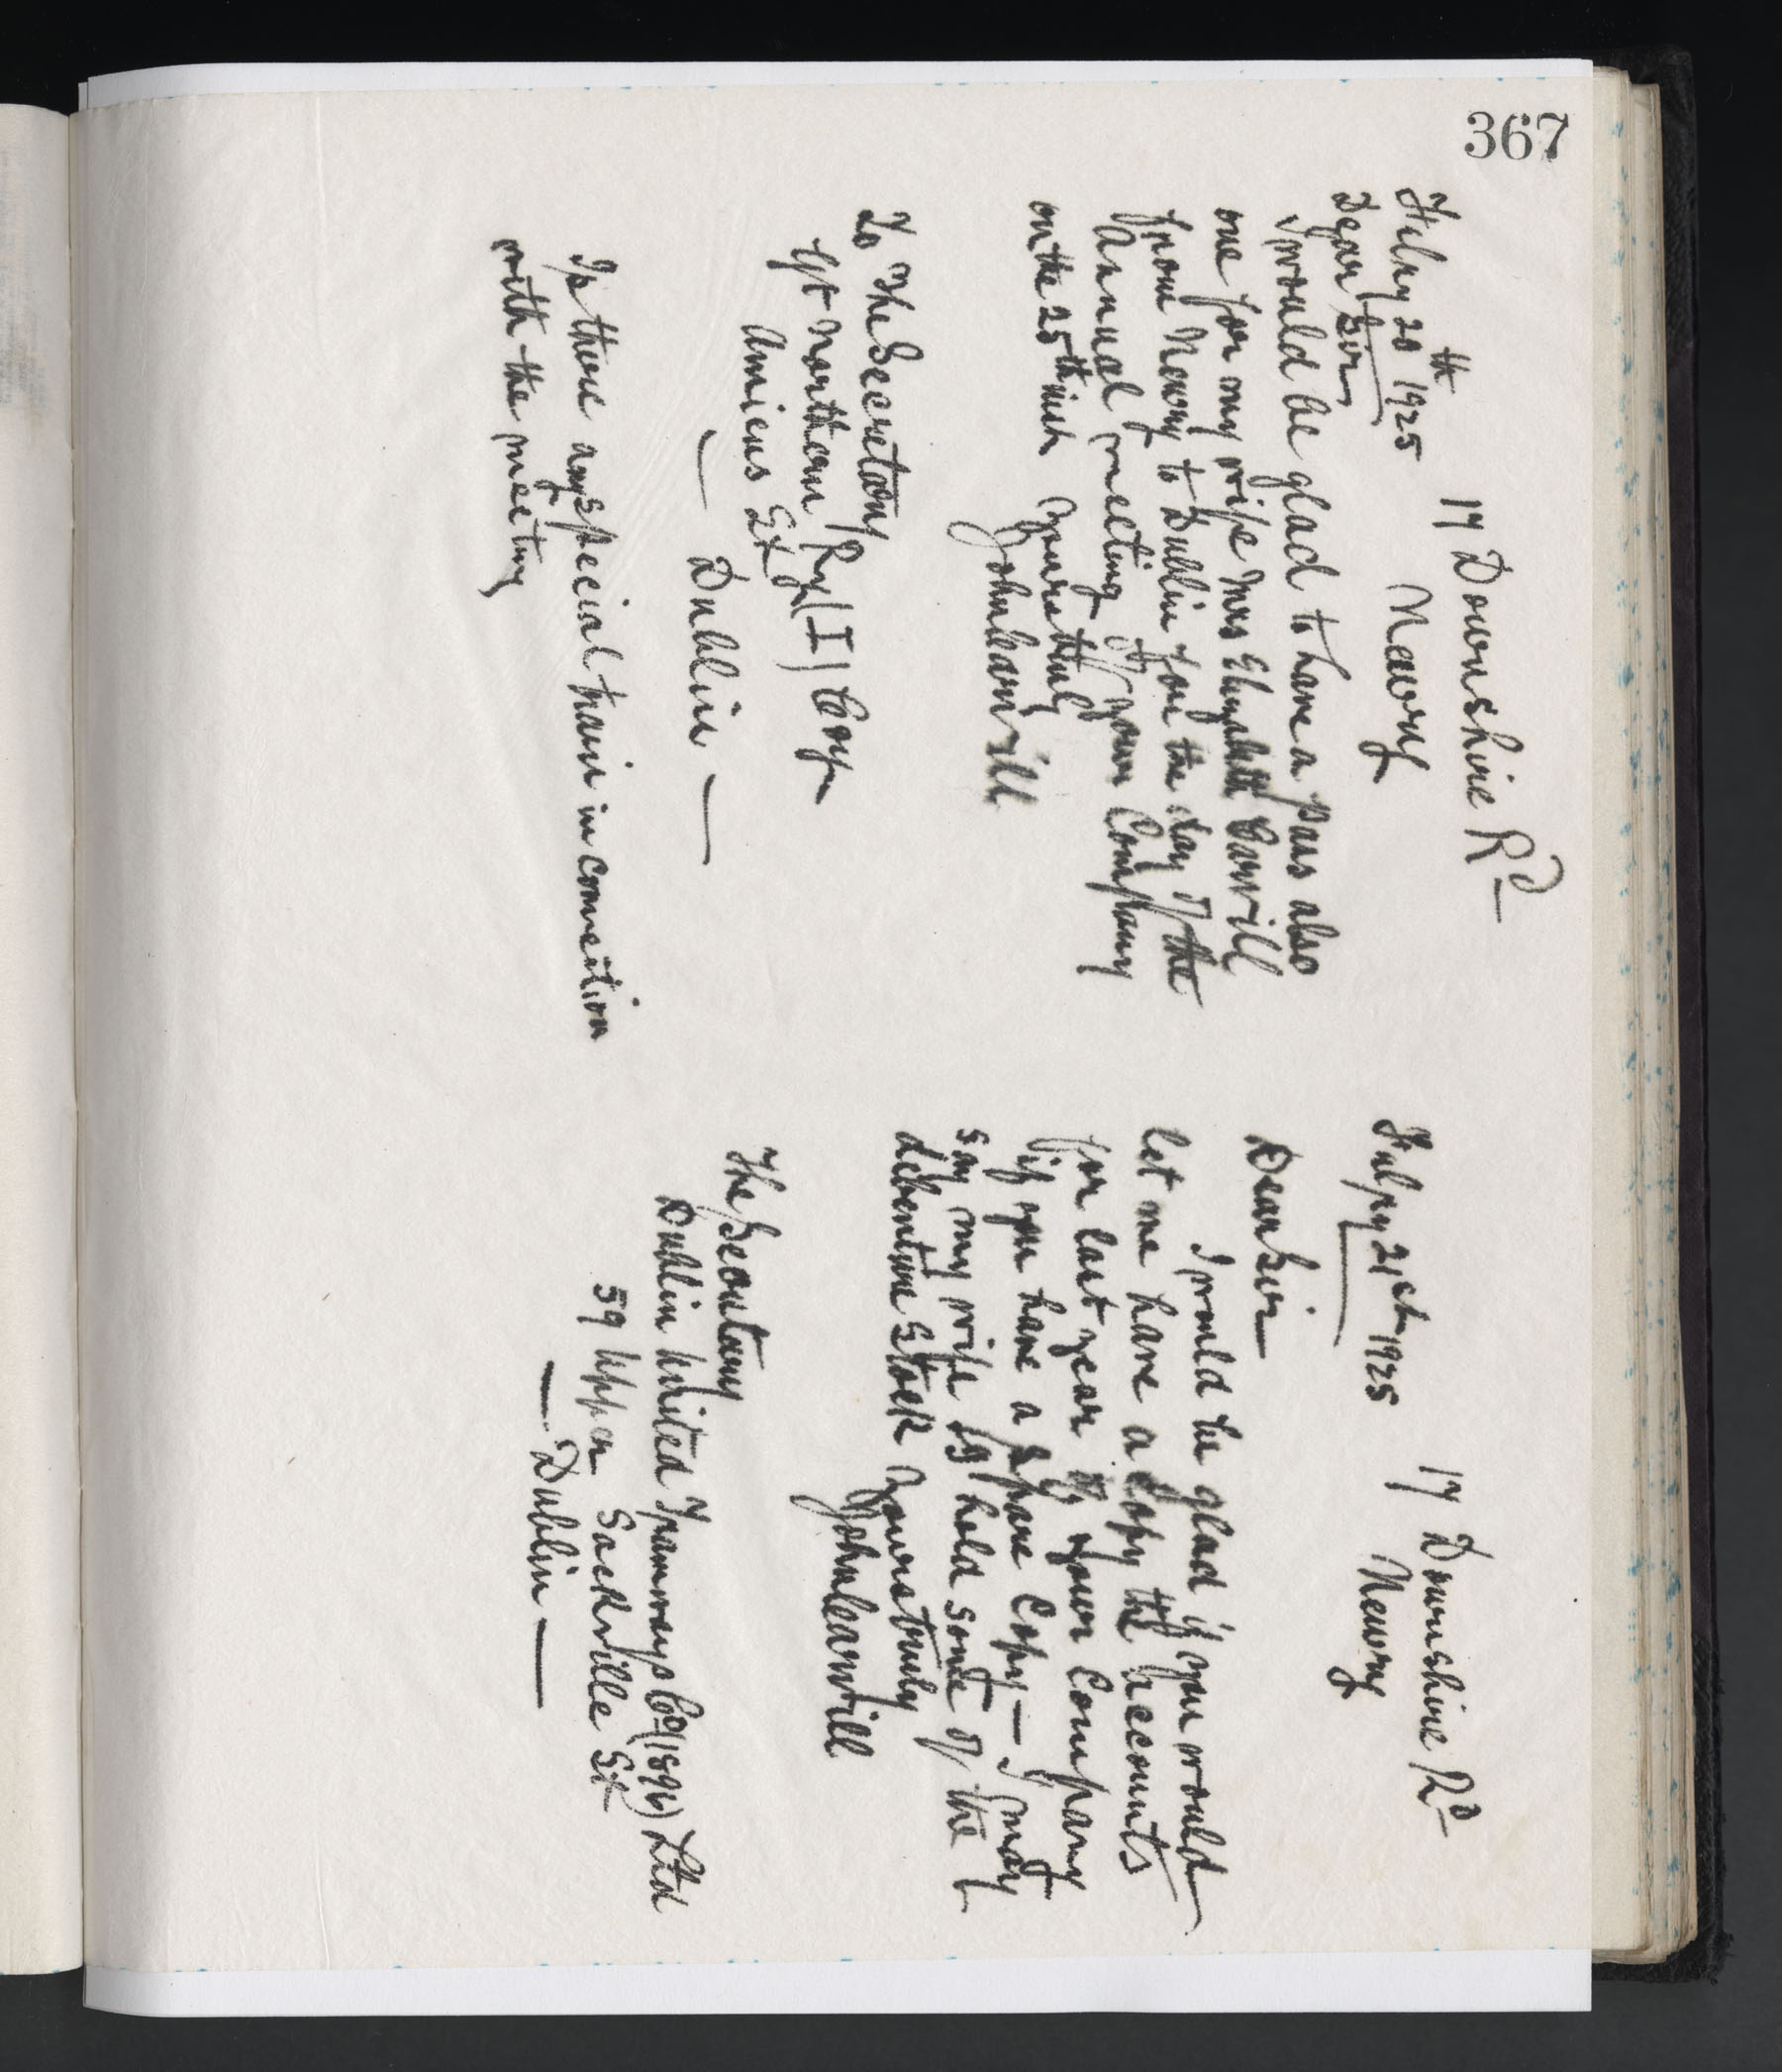 367
17 Downshire Rd
Newry
Feby 20th 1925
Dear Sir
I would be glad to have a pass also
one for my wife Mrs Elizabeth Carvill
from Newry to Dublin for the day of the
Annual meeting of your Company
on the 25th inst Yours truly
John Carvill
To The Secretary
Gt Northern Ry (I) Coy
Amiens St
Dublin
Is there any special train in connection
with the meeting
17 Downshire Rd
Newry
Feby 21st 1925
Dear Sir
I would be glad if you would
let me have a copy of the accounts
for last year of your Company
if you have a spare Copy — I may
say my wife & I hold some of the
debenture stock Yours truly
John Carvill
The Secretary
Dublin United Tramways Co (1896) Ltd
59 Upper Sackville St
Dublin